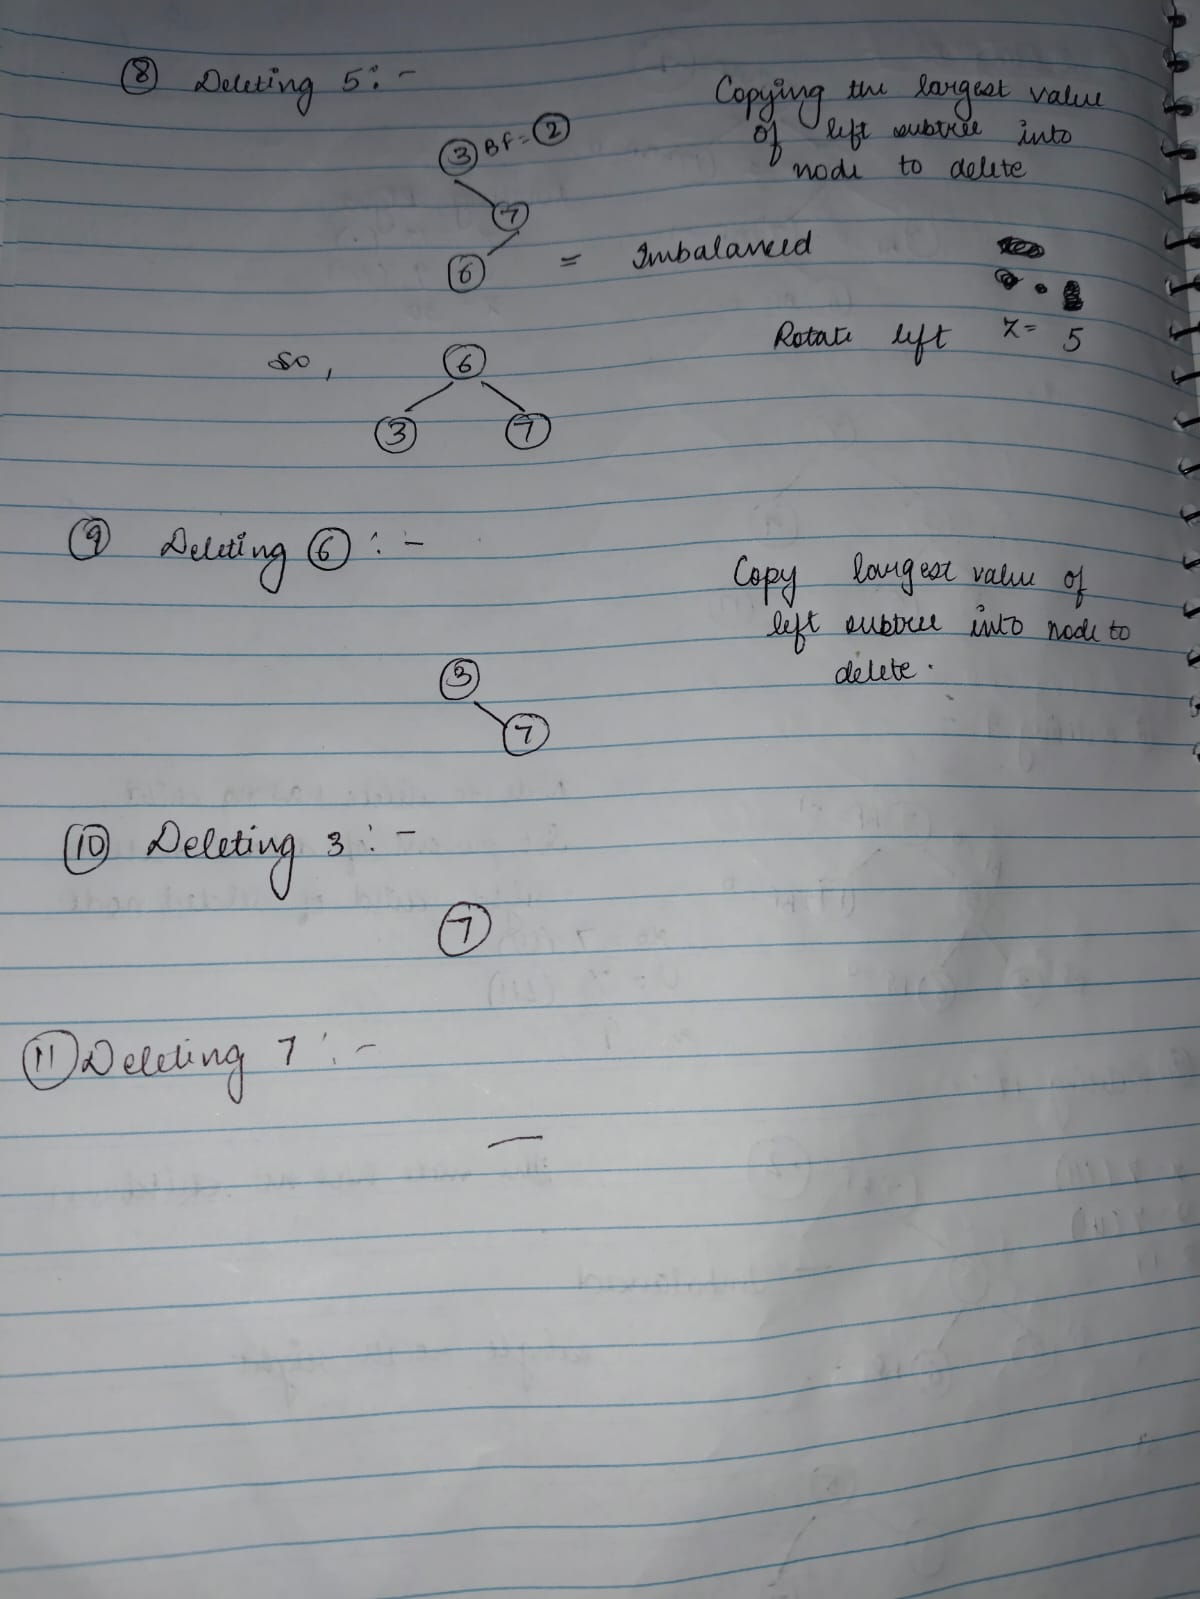 8 Deleting 5:-
Copying the largest value
of left subtree into
node to delete
3 BF=2
7
6 = Imbalanced
Rotate left z= 5
so,
6
3 7
9 Deleting 6:-
Copy largest value of
left subtree into node to
delete.
3
7
10 Deleting 3:-
7
11 Deleting 7:-
—